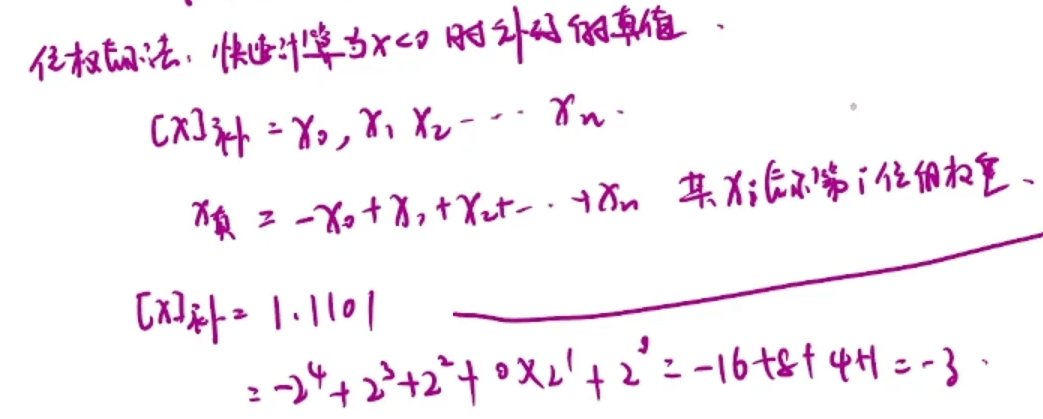 位权表示法,快速计算当x<0时补码的真值.
[X]补 = x₀, x₁ x₂ --- xₙ.
x真 = -x₀ + x₁ + x₂ + -·· + xₙ 其xᵢ表示第i位的权重、
[X]补 = 1.1101
= -2⁴ + 2³ + 2² + 0×2¹ + 2⁰ = -16+8+4+1 = -3.